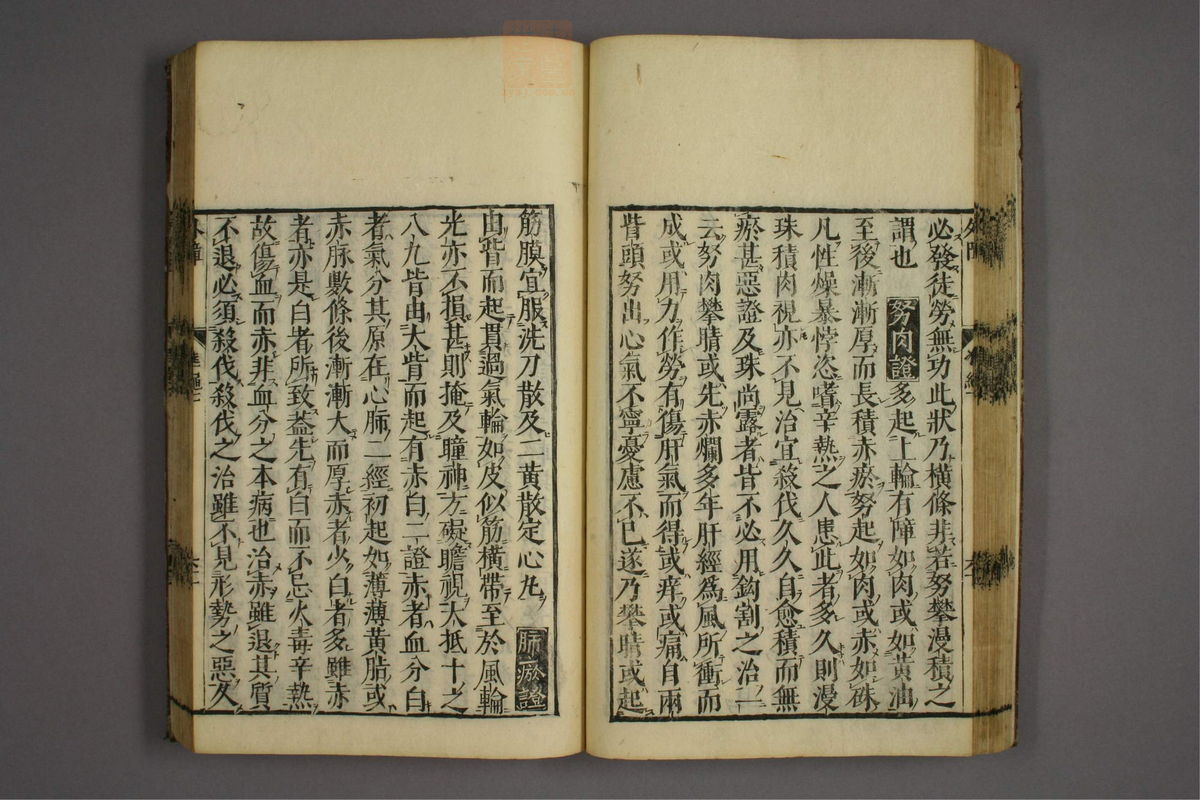 必發徒勞無功此狀乃橫條非若努攀漫積之
謂也 努肉證 多起上輪有障如肉或如黃油
至後漸漸厚而長積赤瘀努起如肉或赤如硃
凡性燥暴悖恣嗜辛熱之人患此者多久則漫
珠積肉視亦不見治宜殺伐久久自愈積而無
瘀甚惡證及珠尚露者皆不必用鈎割之治一
云努肉攀睛或先赤爛多年肝經爲風所衝而
成或用力作勞有傷肝氣而得或痒或痛自兩
眥頭努出心氣不寧憂慮不已遂乃攀睛或起
筋膜宜服洗刀散及二黃散定心丸 脈瘀證
由眥而起貫過氣輪如皮似筋橫帶至於風輪
光亦不損甚則掩及瞳神方礙瞻視大抵十之
八九皆由大眥而起有赤白二證赤者血分白
者氣分其原在心脈二經初起如薄薄黃脂或
赤脈數條後漸漸大而厚赤者少白者多雖赤
者亦是白者所致葢先有白而不忌火毒辛熱
故傷血而赤非血分之本病也治赤雖退其質
不退必須殺伐殺伐之治雖不見形勢之惡久